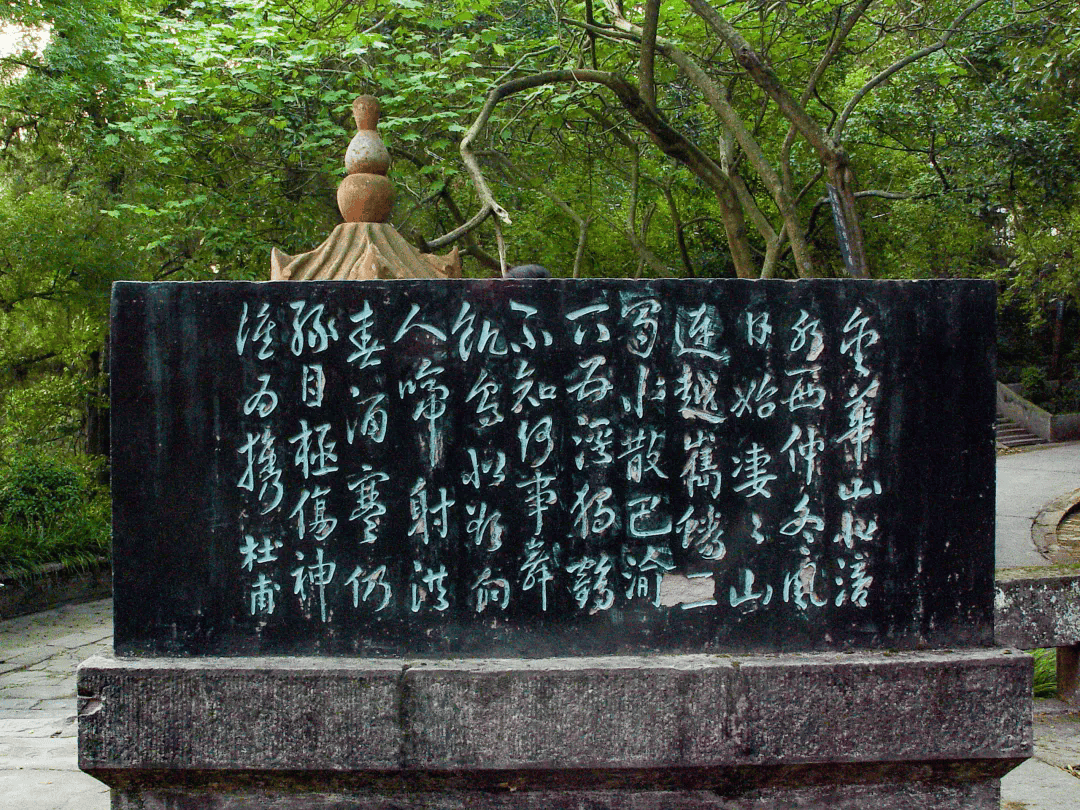 金華山北涪
水西仲冬風
日始淒々山
連越嶲蟠三
蜀水散巴渝
下五溪獨鶴
不知何事舞
飢烏似欲向
人啼射洪
春酒寒仍
綠目極傷神
誰為攜 杜甫